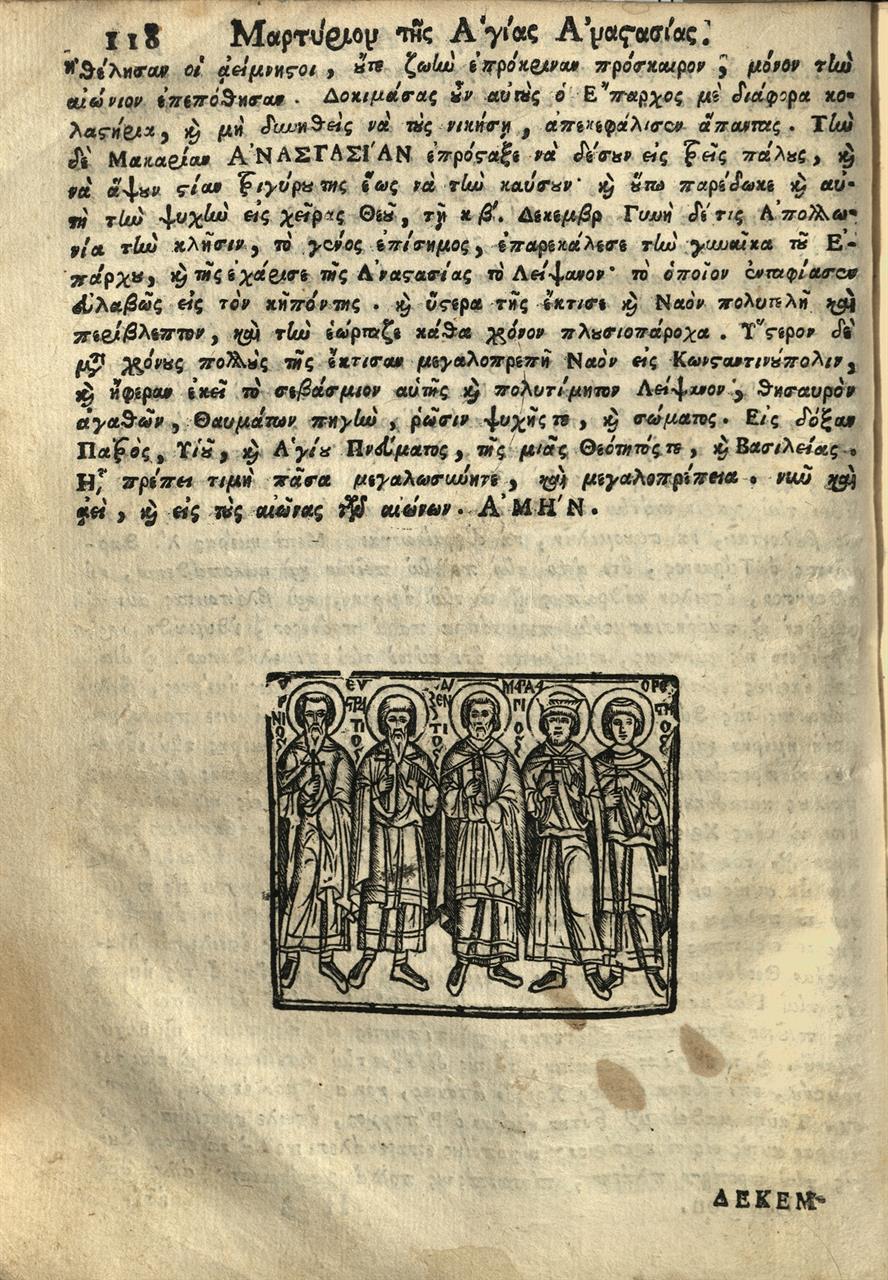 118 Μαρτύριον τῆς Ἁγίας Ἀναστασίας.
ἠθέλησαν οἱ ἀείμνηστοι, οὔτε ζωὴν ἐπρόκριναν πρόσκαιρον, μόνον τὴν
αἰώνιον ἐπεπόθησαν. Δοκιμάσας οὖν αὐτοὺς ὁ Ἔπαρχος μὲ διάφορα κο-
λαστήρια, καὶ μὴ δυνηθεὶς νὰ τοὺς νικήσῃ, ἀπεκεφάλισεν ἅπαντας. Τὴν
δὲ Μακαρίαν ἈΝΑΣΤΑΣΊΑΝ ἐπρόσταξε νὰ δέσουν εἰς τρεῖς πάλους, καὶ
νὰ ἅψουν στίαν τριγύρου της ἕως νὰ τὴν καύσουν· καὶ οὕτω παρέδωκε καὶ αὐ-
τὴ τὴν ψυχὴν εἰς χεῖρας Θεοῦ, τῇ κβ΄. Δεκεμβρ Γυνὴ δέ τις Ἀπολλω-
νία τὴν κλῆσιν, τὸ γένος ἐπίσημος, ἐπαρεκάλεσε τὴν γυναῖκα τοῦ Ἐ-
πάρχου, καὶ τῆς ἐχάρισε τῆς Ἀναστασίας τὸ Λείψανον· τὸ ὁποῖον ἐνταφίασεν
εὐλαβῶς εἰς τὸν κῆπόν της. καὶ ὕστερα τῆς ἔκτισε καὶ Ναὸν πολυτελῆ καὶ
περίβλεπτον, καὶ τὴν ἑώρταζε κάθα χρόνον πλουσιοπάροχα. Ὕστερον δὲ
μετὰ χρόνους πολλοὺς τῆς ἔκτισαν μεγαλοπρεπῆ Ναὸν εἰς Κωνσταντινούπολιν,
καὶ ἤφεραν ἐκεῖ τὸ σεβάσμιον αὐτῆς καὶ πολυτίμητον Λείψανον, θησαυρὸν
ἀγαθῶν, Θαυμάτων πηγὴν, ῥῶσιν ψυχῆς τε, καὶ σώματος. Εἰς δόξαν
Πατρὸς, Υἱοῦ, καὶ Ἁγίου Πνεύματος, τῆς μιᾶς Θεότητός τε, καὶ Βασιλείας.
ᾟ πρέπει τιμὴ πᾶσα μεγαλωσύνητε, καὶ μεγαλοπρέπεια. νῦν καὶ
ἀεὶ, καὶ εἰς τοὺς αἰῶνας τῶν αἰώνων. ἈΜΉΝ.
ΕΥΣΤΡΑΤΙΟΣ
ΜΑΡΔΑΡΙΟΣ
ΟΡΕΣΤΗΣ
ΔΕΚΕΜ-